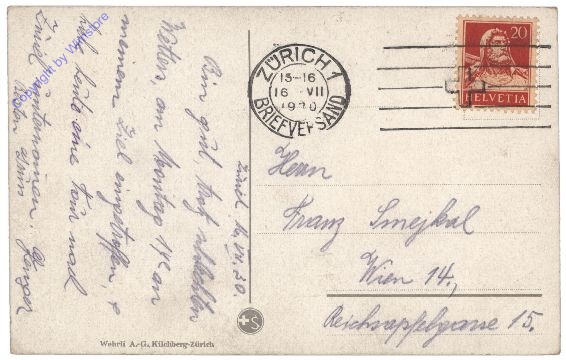 Zürich 16.VII.30.
Bin gut, trotz schlechten
Wetter, am Montag an
meinem Ziel eingetroffen, &
heute eine Tour nach
Zürich unternommen.
Copyright by Wmstore
ZÜRICH 1
15-16
16 VII
1930
BRIEFVERSAND
20
HELVETIA
Herrn
Franz Smejkal
Wien 14.,
Reichsapfelgasse 15.
S
Wehrli A.-G. Kilchberg-Zürich